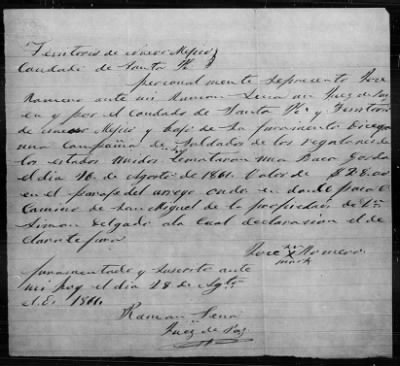 Territorio de Nuevo Mejico }
Condado de Santa Fé }
personalmente se presento Jose
Romero ante mi Ramon Sena un Juez de Paz
en y por el Condado de Santa Fé y Territorio
de Nuevo Mejico y bajo de su juramento dice que
una Compañia de Soldados de los regulares de
los estados Unidos le mataron una Baca gorda
el dia 16 de Agosto de 1861. Valor de $28.00
en el paraje del arroyo ondo en donde pasa el
Camino de San Miguel de la propiedad de Dn
Simon Delgado a la cual declaracion el de
clarante jura
Jose his X mark Romero
Juramentado y suscrito ante
mi hoy el dia 28 de Agto
A.D. 1861.
Ramon Sena
Juez de Paz